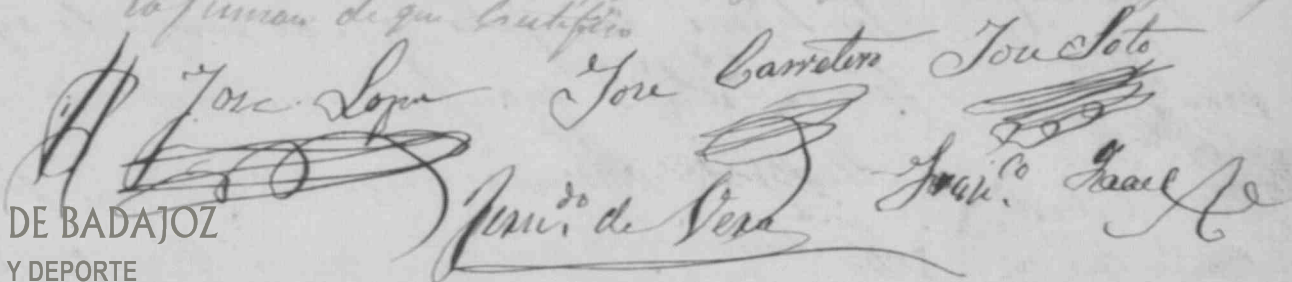 la firman de que Certifico
Jose Lopez Jose Carretero Jose Soto
Fern.do de Vera Fran.co
DE BADAJOZ
Y DEPORTE